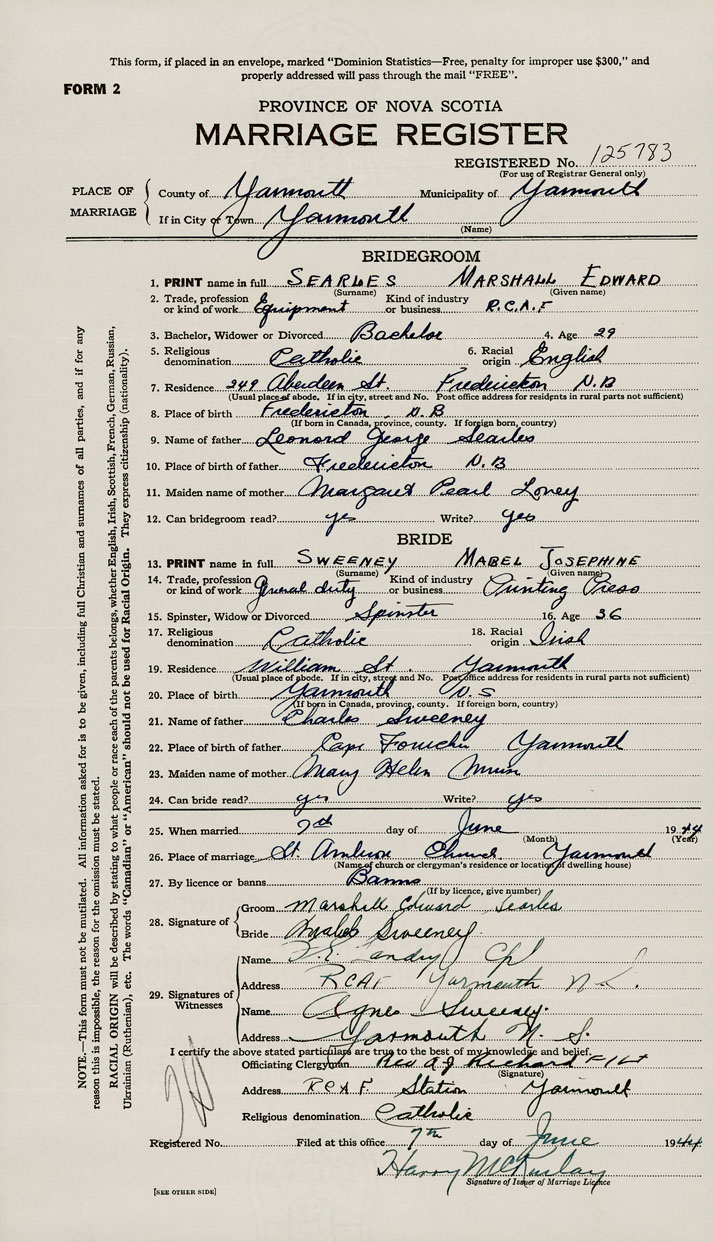 This form, if placed in an envelope, marked "Dominion Statistics—Free, penalty for improper use $300," and
properly addressed will pass through the mail "FREE".
FORM 2
PROVINCE OF NOVA SCOTIA
MARRIAGE REGISTER
REGISTERED No. 125783
(For use of Registrar General only)
PLACE OF MARRIAGE
County of Yarmouth Municipality of Yarmouth
If in City or Town Yarmouth
(Name)
BRIDEGROOM
1. PRINT name in full SEARLES MARSHALL EDWARD
(Surname) (Given name)
2. Trade, profession or kind of work Equipment Kind of industry or business R.C.A.F
3. Bachelor, Widower or Divorced Bachelor 4. Age 29
5. Religious denomination Catholic 6. Racial origin English
7. Residence 249 Aberdeen St. Fredericton N.B
(Usual place of abode. If in city, street and No. Post office address for residents in rural parts not sufficient)
8. Place of birth Fredericton N.B
(If born in Canada, province, county. If foreign born, country)
9. Name of father Leonard George Searles
10. Place of birth of father Fredericton N.B
11. Maiden name of mother Margaret Pearl Loney
12. Can bridegroom read? yes Write? yes
BRIDE
13. PRINT name in full SWEENEY MABEL JOSEPHINE
(Surname) (Given name)
14. Trade, profession or kind of work General duty Kind of industry or business Printing Press
15. Spinster, Widow or Divorced Spinster 16. Age 36
17. Religious denomination Catholic 18. Racial origin Irish
19. Residence William St. Yarmouth
(Usual place of abode. If in city, street and No. Post office address for residents in rural parts not sufficient)
20. Place of birth Yarmouth N.S
(If born in Canada, province, county. If foreign born, country)
21. Name of father Charles Sweeney
22. Place of birth of father Cape Yarmouth
23. Maiden name of mother Mary Helen
24. Can bride read? yes Write? yes
25. When married 7th day of June 1944
(Month) (Year)
26. Place of marriage St. Ambrose Church Yarmouth
(Name of church or clergyman's residence or location of dwelling house)
27. By licence or banns Banns
(If by licence, give number)
28. Signature of
Groom Marshall Edward Searles
Bride Mabel Sweeney
29. Signatures of Witnesses
Name Landry Cpl
Address RCAF Yarmouth N.S.
Name Agnes Sweeney.
Address Yarmouth N. S.
I certify the above stated particulars are true to the best of my knowledge and belief.
Officiating Clergyman Rev A J Richard F/Lt
(Signature)
Address R.C.A.F. Station Yarmouth
Religious denomination Catholic
Registered No. Filed at this office 7th day of June 1944
Harry McKinlay
Signature of Issuer of Marriage Licence
[SEE OTHER SIDE]
NOTE.—This form must not be mutilated. All information asked for is to be given, including full Christian and surnames of all parties, and if for any
reason this is impossible, the reason for the omission must be stated.
RACIAL ORIGIN will be described by stating to what people or race each of the parents belongs, whether English, Irish, Scottish, French, German, Russian,
Ukrainian (Ruthenian), etc. The words "Canadian" or "American" should not be used for Racial Origin. They express citizenship (nationality).